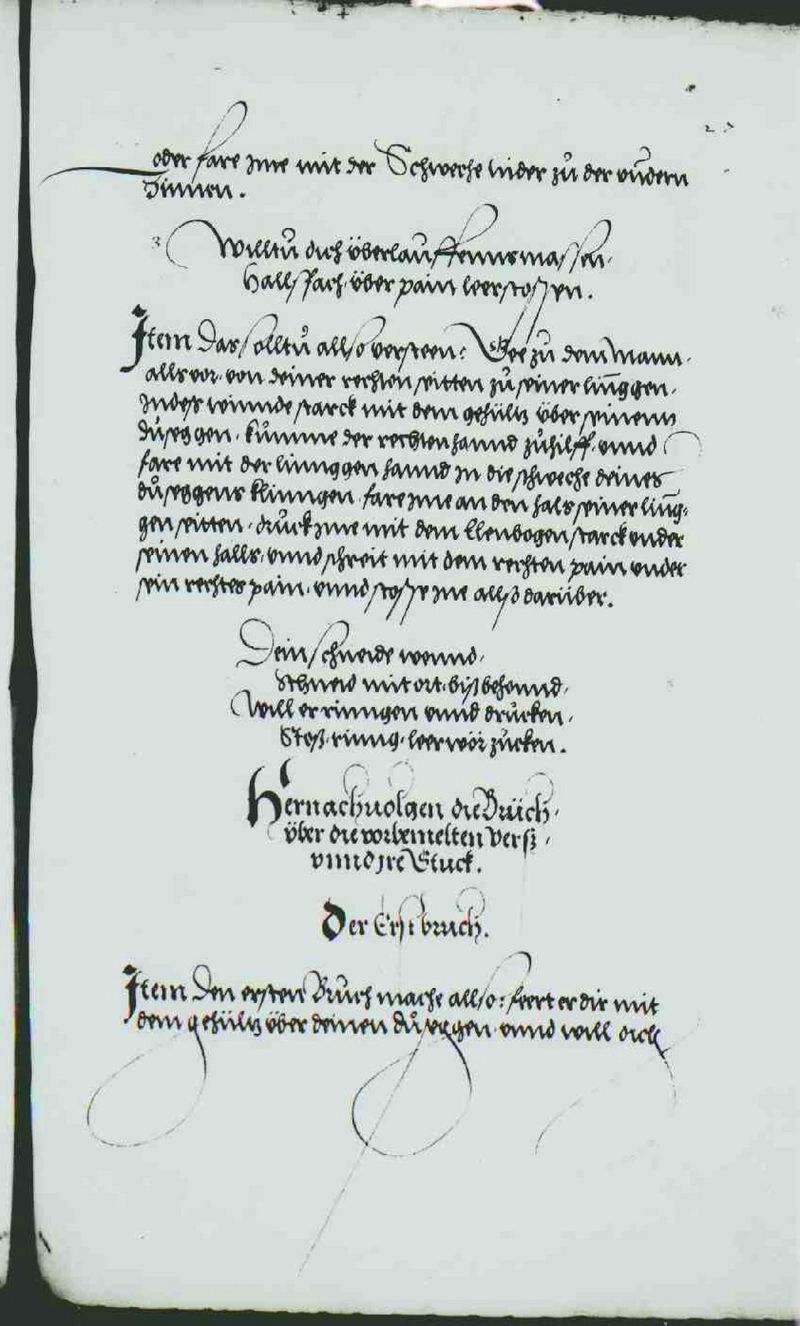 oder fare jme mit der Schweche wider zů der vndern
Zinnen.
3 Willtů dich überlauffenns massen.
Halls Fach. über pain leer stossen.
Item Das solltů allso versteen: Gee zů dem Mann.
alls vor. von deiner rechten seitten zů seiner linnggen.
Indes winnde starck mit dem gehültz über seinenn
důseggen. kumme der rechten hannd zůhilff. vnnd
fare mit der linnggen hannd In die schweche deines
důseggens klinngen. fare jme an den hals seiner linng-
gen seitten. druck jme mit dem Elenbogen starck vnder
seinen halls. vnnd schreit mit dem rechten pain vnder
sein rechtes pain. vnnd stosse jne allso darüber.
Dein schneide wennd.
Schneid mit ort. biß behennd.
Will er rinngen vnnd drucken.
Stoß. rinng. leer wör zucken.
Hernach uolgen die Brüch.
über die vorbemelten Verß.
vnnd jre Stuck.
Der Erst bruch.
Item Den ersten Bruch mache allso: feert er dir mit
dem gehültz über deinen důseggen. vnnd will dich